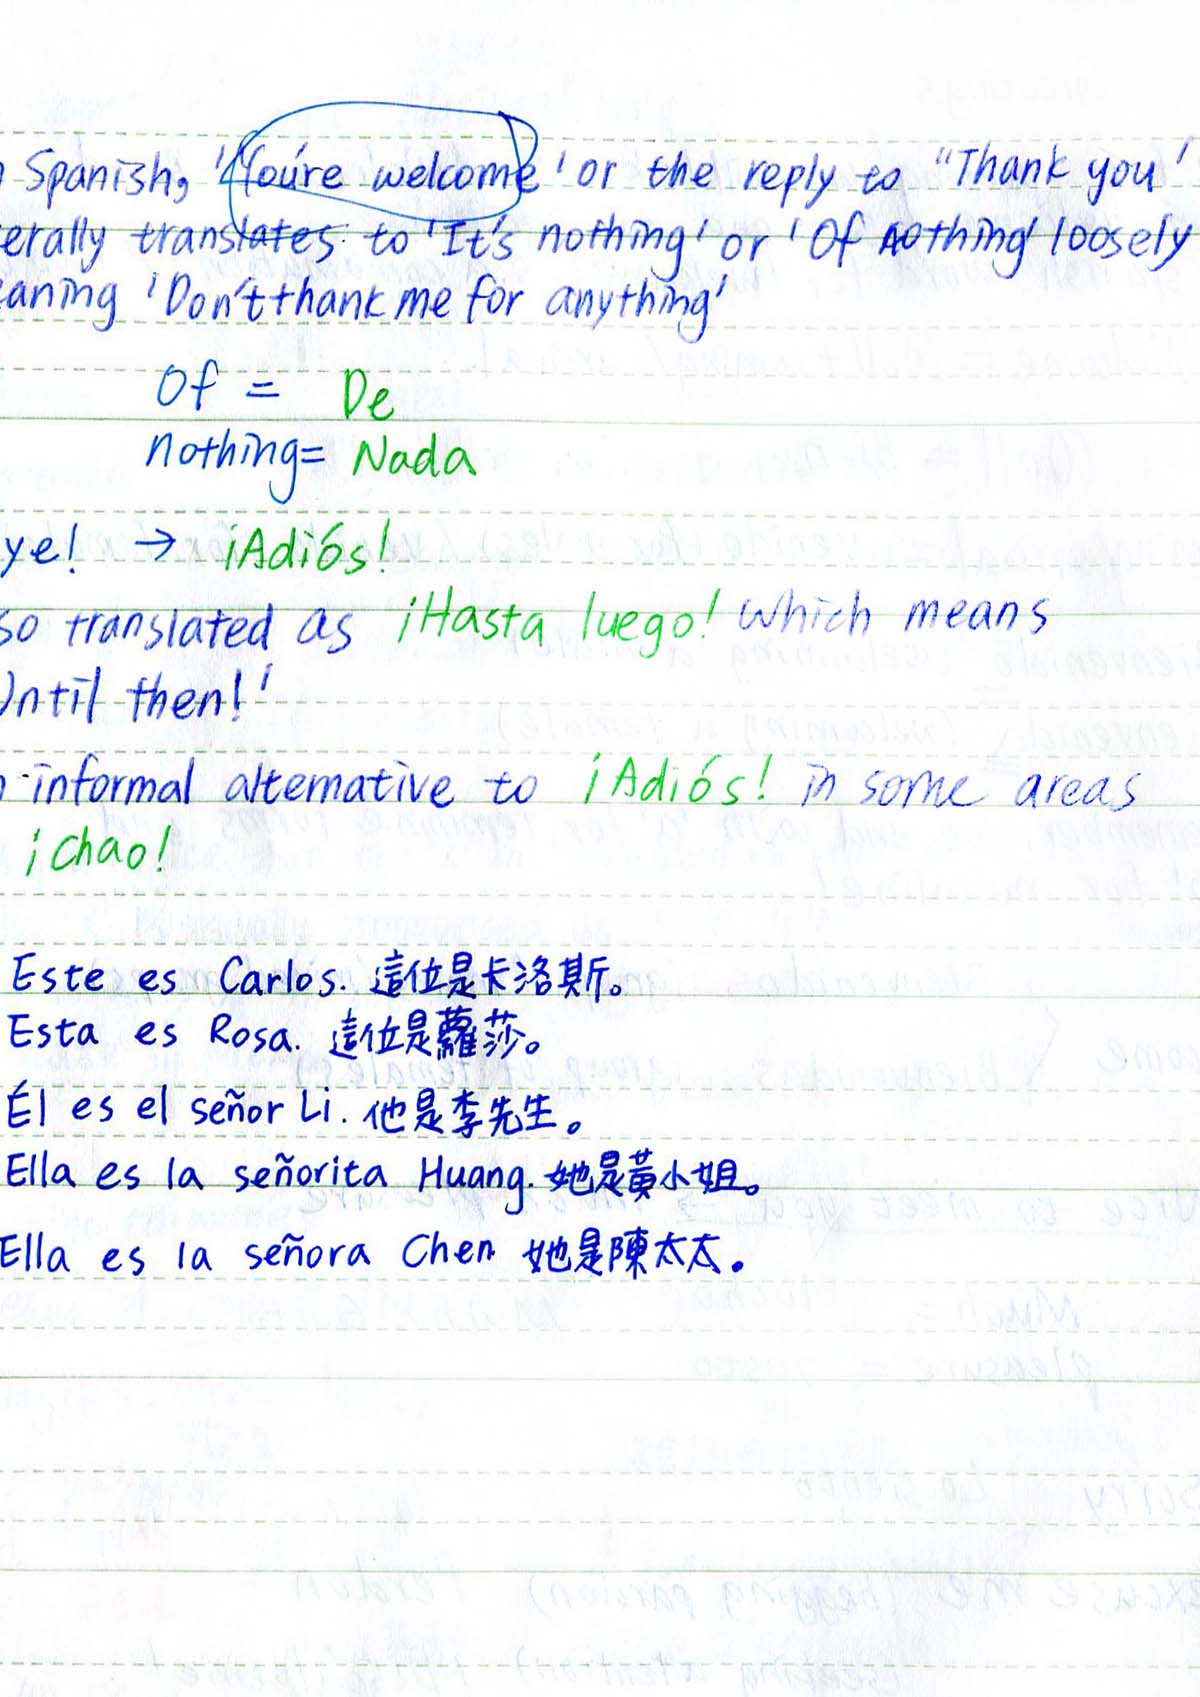 Spanish, 'You're welcome' or the reply to "Thank you'
erally translates to 'It's nothing' or 'Of nothing' loosely
eaning 'Don't thank me for anything'
Of = De
nothing= Nada
ye! → ¡Adiós!
so translated as ¡Hasta luego! which means
Until then!'
informal alternative to ¡Adiós! in some areas
¡Chao!
Este es Carlos. 這位是卡洛斯。
Esta es Rosa. 這位是蘿莎。
Él es el señor Li. 他是李先生。
Ella es la señorita Huang. 她是黃小姐。
Ella es la señora Chen 她是陳太太。